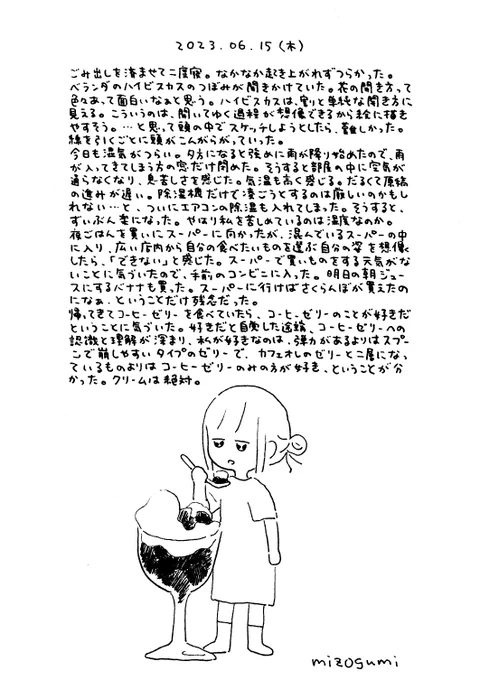 2023.06.15(木)
ごみ出しを済ませて二度寝。なかなか起き上がれずつらかった。
ベランダのハイビスカスのつぼみが開きかけていた。花の開き方って
色々あって面白いなぁと思う。ハイビスカスは、割と単純な開き方に
見える。こういうのは、開いてゆく過程が想像できるから絵に描き
やすそう。…と思って頭の中でスケッチしようとしたら、難しかった。
線を引くごとに頭がこんがらがっていった。
今日も湿気がつらい。夕方になると強めに雨が降り始めたので、雨
が入ってきてしまう方の窓だけ閉めた。そうすると部屋の中に空気が
通らなくなり、息苦しさを感じた。気温も高く感じる。だるくて原稿
の進みが遅い。除湿機だけで凌ごうとするのは厳しいのかもし
れない…と、ついにエアコンの除湿も入れてしまった。そうすると、
ずいぶん楽になった。やはり私を苦しめているのは湿度なのか。
夜ごはんを買いにスーパーに向かったが、混んでいるスーパーの中
に入り、広い店内から自分の食べたいものを選ぶ自分の姿を想像
したら、「できない」と感じた。スーパーで買いものをする元気がな
いことに気づいたので、手前のコンビニに入った。明日の朝ジュー
スにするバナナも買った。スーパーに行けばさくらんぼが買えたの
になぁ、ということだけ残念だった。
帰ってきてコーヒーゼリーを食べていたら、コーヒーゼリーのことが好きだ
ということに気づいた。好きだと自覚した途端、コーヒーゼリーへの
認識と理解が深まり、私が好きなのは、弾力があるよりはスプー
ンで崩しやすいタイプのゼリーで、カフェオレのゼリーと二層になっ
ているものよりはコーヒーゼリーのみの方が好き、ということが分
かった。クリームは絶対。
mizogumi